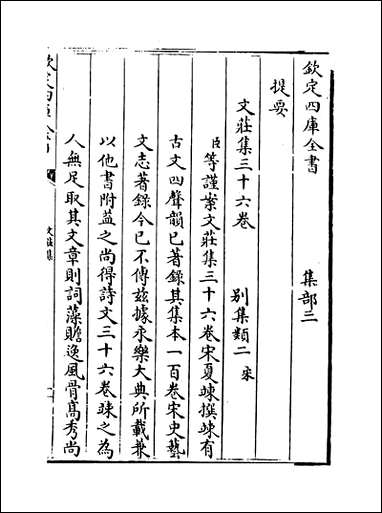 欽定四庫全書 集部二
提要
文莊集三十六卷 别集類二 宋
臣等謹案文莊集三十六卷宋夏竦撰竦有
古文四聲韻已著録其集本一百卷宋史藝
文志著録今已不傳兹據永樂大典所載兼
以他書附益之尚得詩文三十六卷竦之為
人無足取其文章則詞藻贍逸風骨高秀尚
文莊集